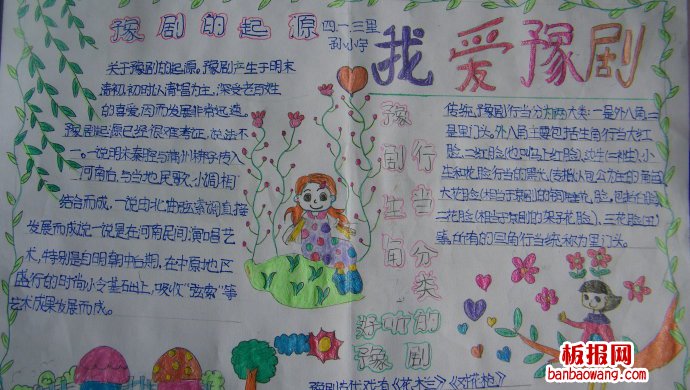 豫剧的起源
四一三里
孙小宇
我爱豫剧
关于豫剧的起源,豫剧产生于明末
清初,初时以清唱为主,深受老百姓
的喜爱,因而发展非常迅速。
豫剧起源已经很准考证,说法不
一。一说明末秦腔与蒲州梆子传入
河南后,与当地民歌、小调相
结合而成,一说由北曲弦索调直接
发展而成,一说是在河南民间演唱艺
术,特别是自明朝中后期,在中原地区
盛行的时尚小令基础上,吸收“弦索”等
艺术成果发展而成。
豫剧生旦
行当分类
传统,豫剧行当分为两大类:一是外八角,二
是里门头。外八角主要包括生角行当大红
脸、二红脸(也叫马上红脸)、边生(二补生)、小
生和花脸行当的黑头
大花脸(相当于京剧的铜锤花脸
二花脸(相当于京剧的架子花脸)、三花脸(丑)
所有的旦角行当统称为里门头。
好听的
豫剧
豫剧古代戏有《花木兰》《对花枪》
板报网
banbaowang.com